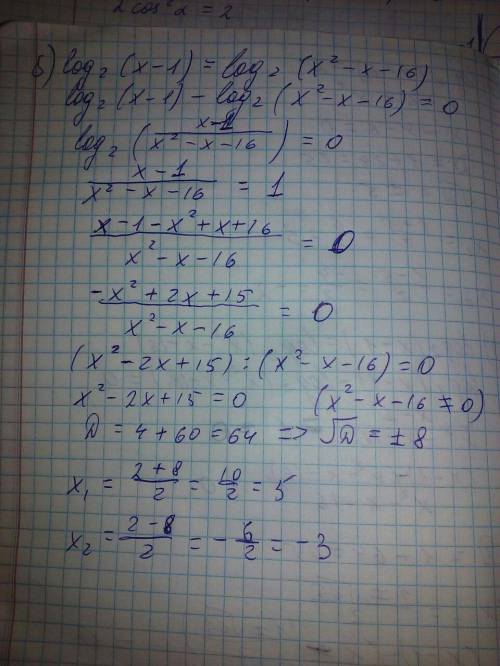 2 cos²α = 2
б) log₂ (x-1) = log₂ (x²-x-16)
log₂ (x-1) - log₂ (x²-x-16) = 0
log₂ ( (x-1)/(x²-x-16) ) = 0
(x-1)/(x²-x-16) = 1
(x-1-x²+x+16)/(x²-x-16) = 0
(-x²+2x+15)/(x²-x-16) = 0
(x²-2x+15) : (x²-x-16) = 0
x²-2x+15 = 0 (x²-x-16 ≠ 0)
D = 4+60 = 64 => √D = ±8
x₁ = (2+8)/2 = 10/2 = 5
x₂ = (2-8)/2 = -6/2 = -3